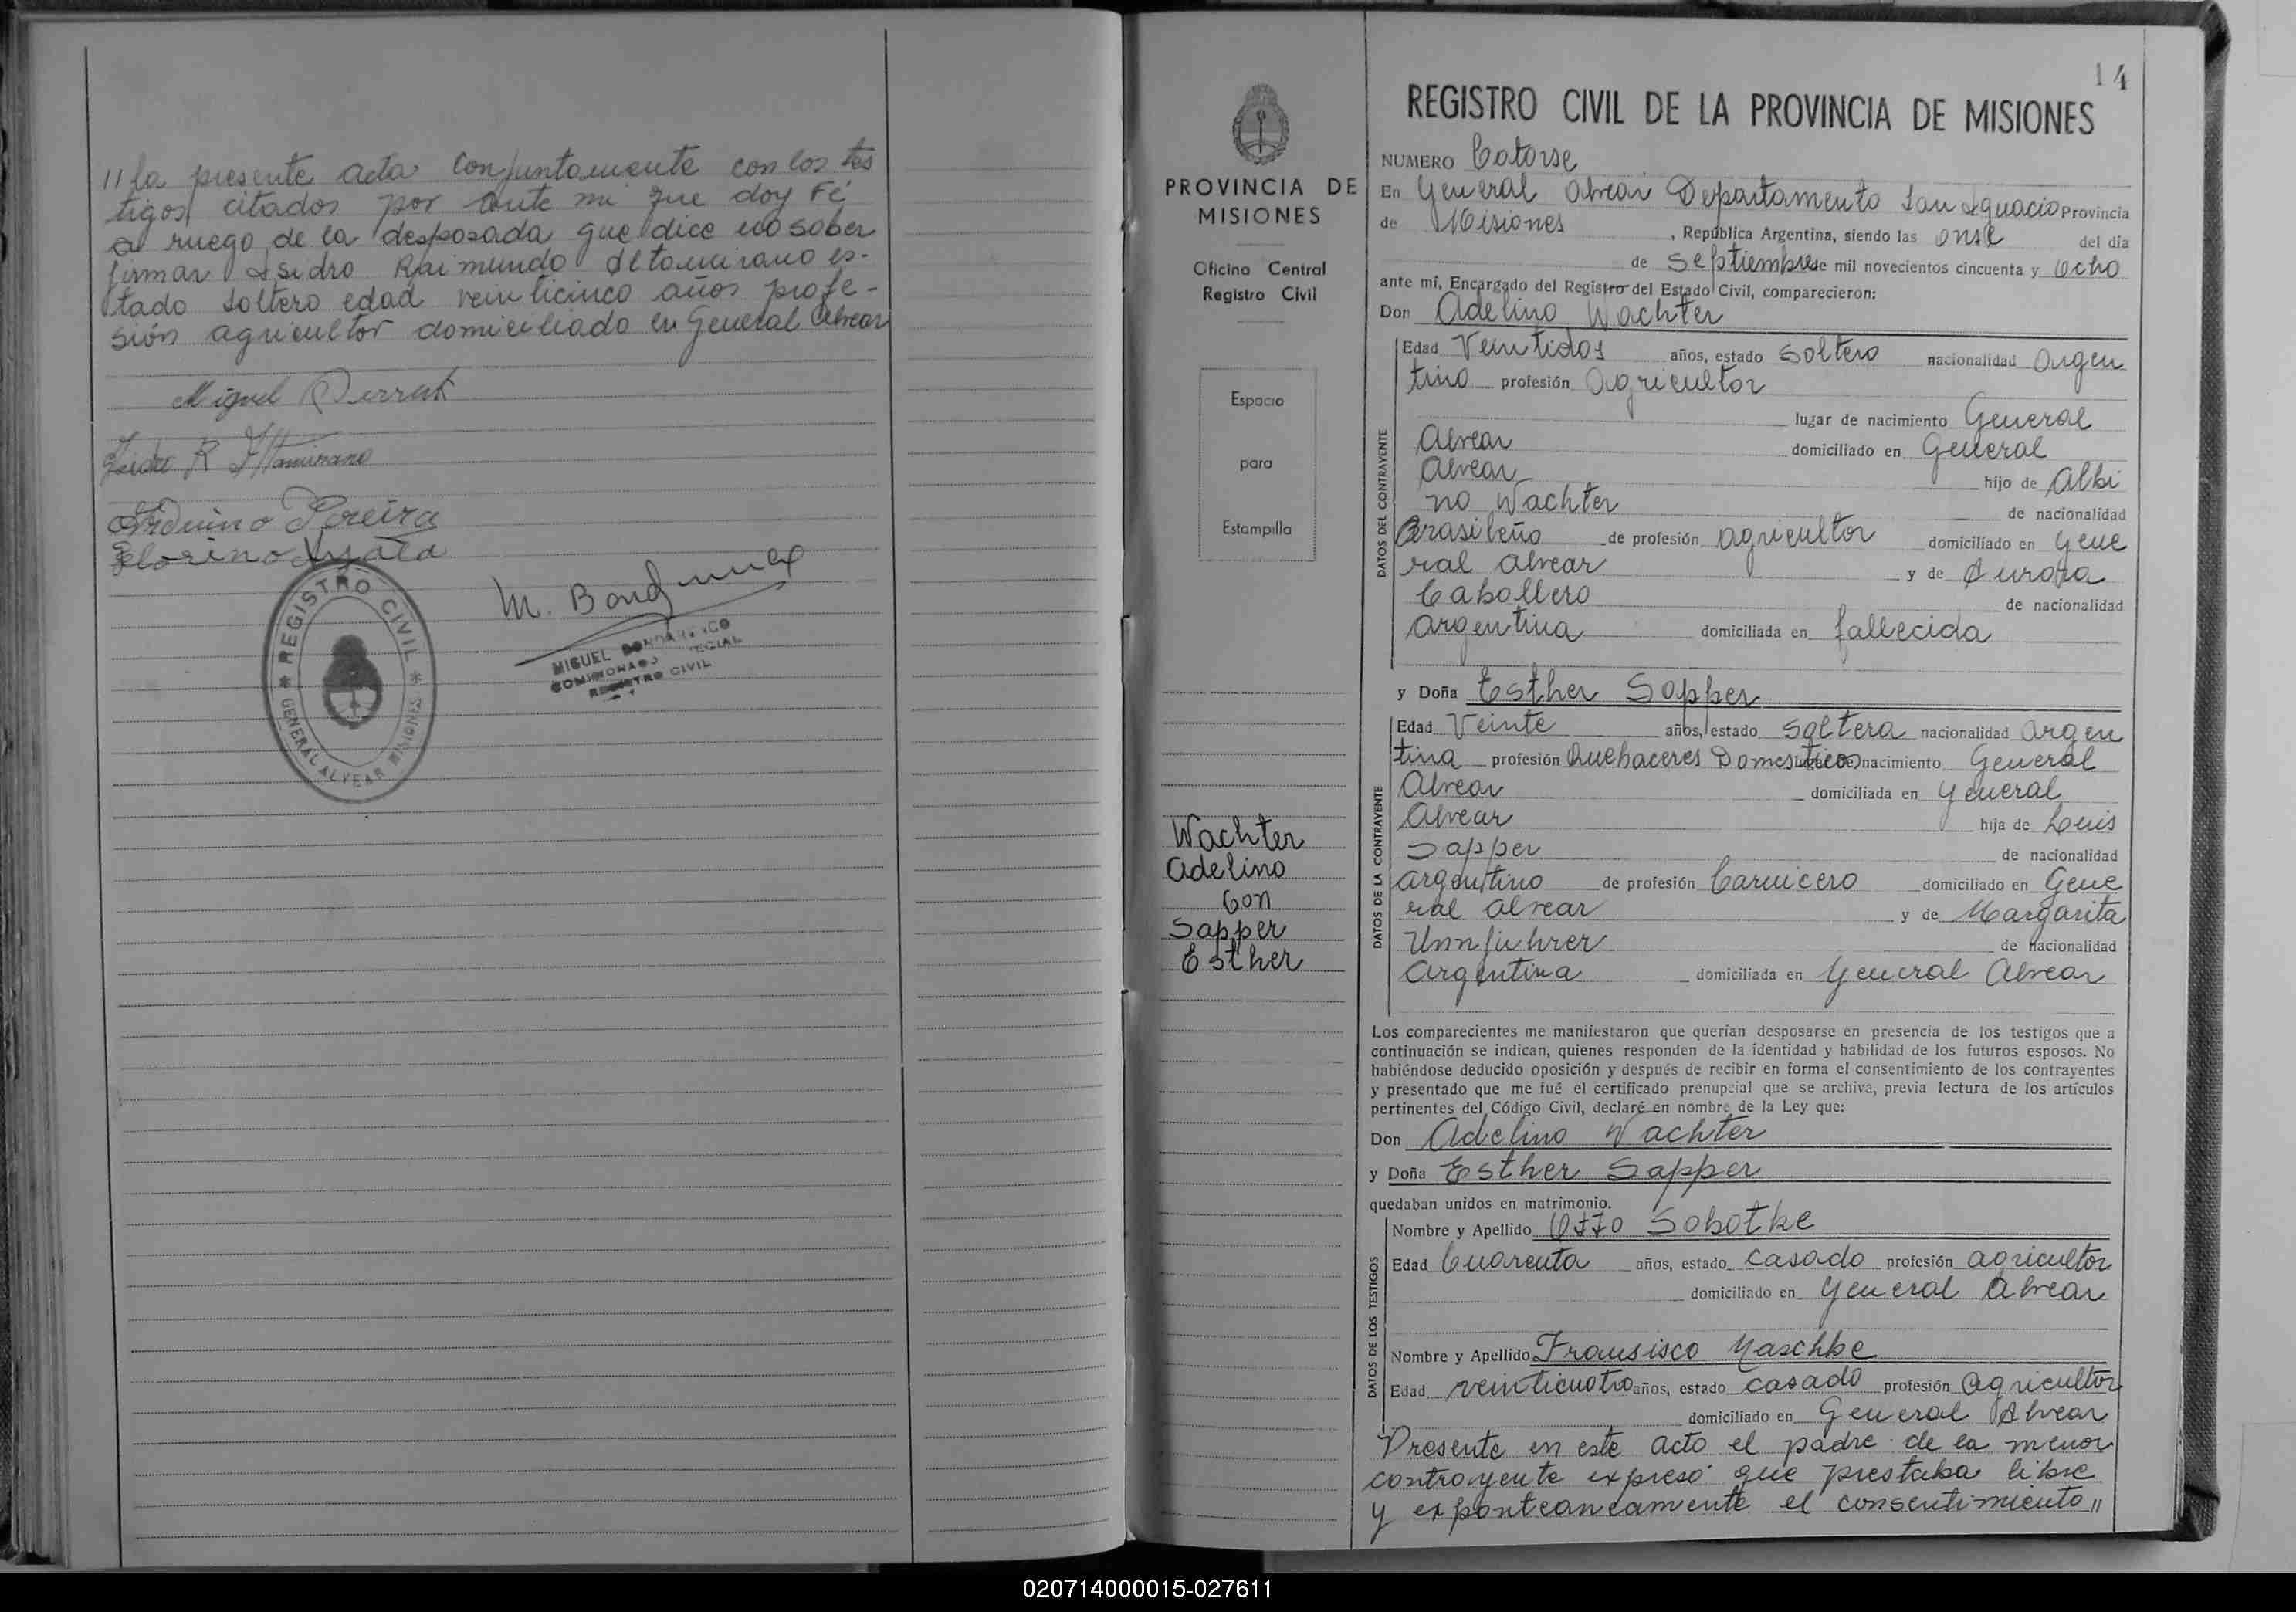 // la presente acta conjuntamente con los tes
tigos citados por ante mi que doy Fé
a ruego de la desposada que dice no saber
firmar Isidro Raimundo Altamirano es-
tado soltero edad veinticinco años profe-
sión agricultor domiciliado en General Alvear
Miguel
Isidro R Altamirano
Arduino Pereira
Florino Ayala
REGISTRO CIVIL
GENERAL ALVEAR MISIONES
M. Bond
MIGUEL BONDARENCO
REGISTRO CIVIL
PROVINCIA DE
MISIONES
Oficina Central
Registro Civil
Espacio
para
Estampilla
Wachter
Adelino
Con
Sapper
Esther
14
REGISTRO CIVIL DE LA PROVINCIA DE MISIONES
NUMERO Catorse
En General Alvear Departamento San Ignacio Provincia
de Misiones, República Argentina, siendo las onse del día
de Septiembre de mil novecientos cincuenta y ocho
ante mí, Encargado del Registro del Estado Civil, comparecieron:
Don Adelino Wachter
DATOS DEL CONTRAYENTE
Edad Veintidos años, estado Soltero nacionalidad Argen
tino profesión Agricultor
lugar de nacimiento General
Alvear domiciliado en General
Alvear hijo de Albi
no Wachter de nacionalidad
Brasileño de profesión agricultor domiciliado en Gene
ral Alvear y de Aurora
Caballero de nacionalidad
argentina domiciliada en fallecida
y Doña Esther Sapper
DATOS DE LA CONTRAYENTE
Edad Veinte años, estado Soltera nacionalidad Argen
tina profesión Quehaceres Domesticos lugar de nacimiento General
Alvear domiciliada en General
Alvear hija de Luis
Sapper de nacionalidad
argentino de profesión Carnicero domiciliado en Gene
ral Alvear y de Margarita
Unnfuhrer de nacionalidad
Argentina domiciliada en General Alvear
Los comparecientes me manifestaron que querían desposarse en presencia de los testigos que a
continuación se indican, quienes responden de la identidad y habilidad de los futuros esposos. No
habiéndose deducido oposición y después de recibir en forma el consentimiento de los contrayentes
y presentado que me fué el certificado prenupcial que se archiva, previa lectura de los artículos
pertinentes del Código Civil, declaré en nombre de la Ley que:
Don Adelino Wachter
y Doña Esther Sapper
quedaban unidos en matrimonio.
DATOS DE LOS TESTIGOS
Nombre y Apellido Otto Sobotke
Edad Cuarenta años, estado casado profesión agricultor
domiciliado en General Alvear
Nombre y Apellido Fransisco Maschke
Edad veinticuatro años, estado casado profesión Agricultor
domiciliado en General Alvear
Presente en este acto el padre de la menor
contrayente expresó que prestaba libre
y exponteaneamente el consentimiento //
020714000015-027611